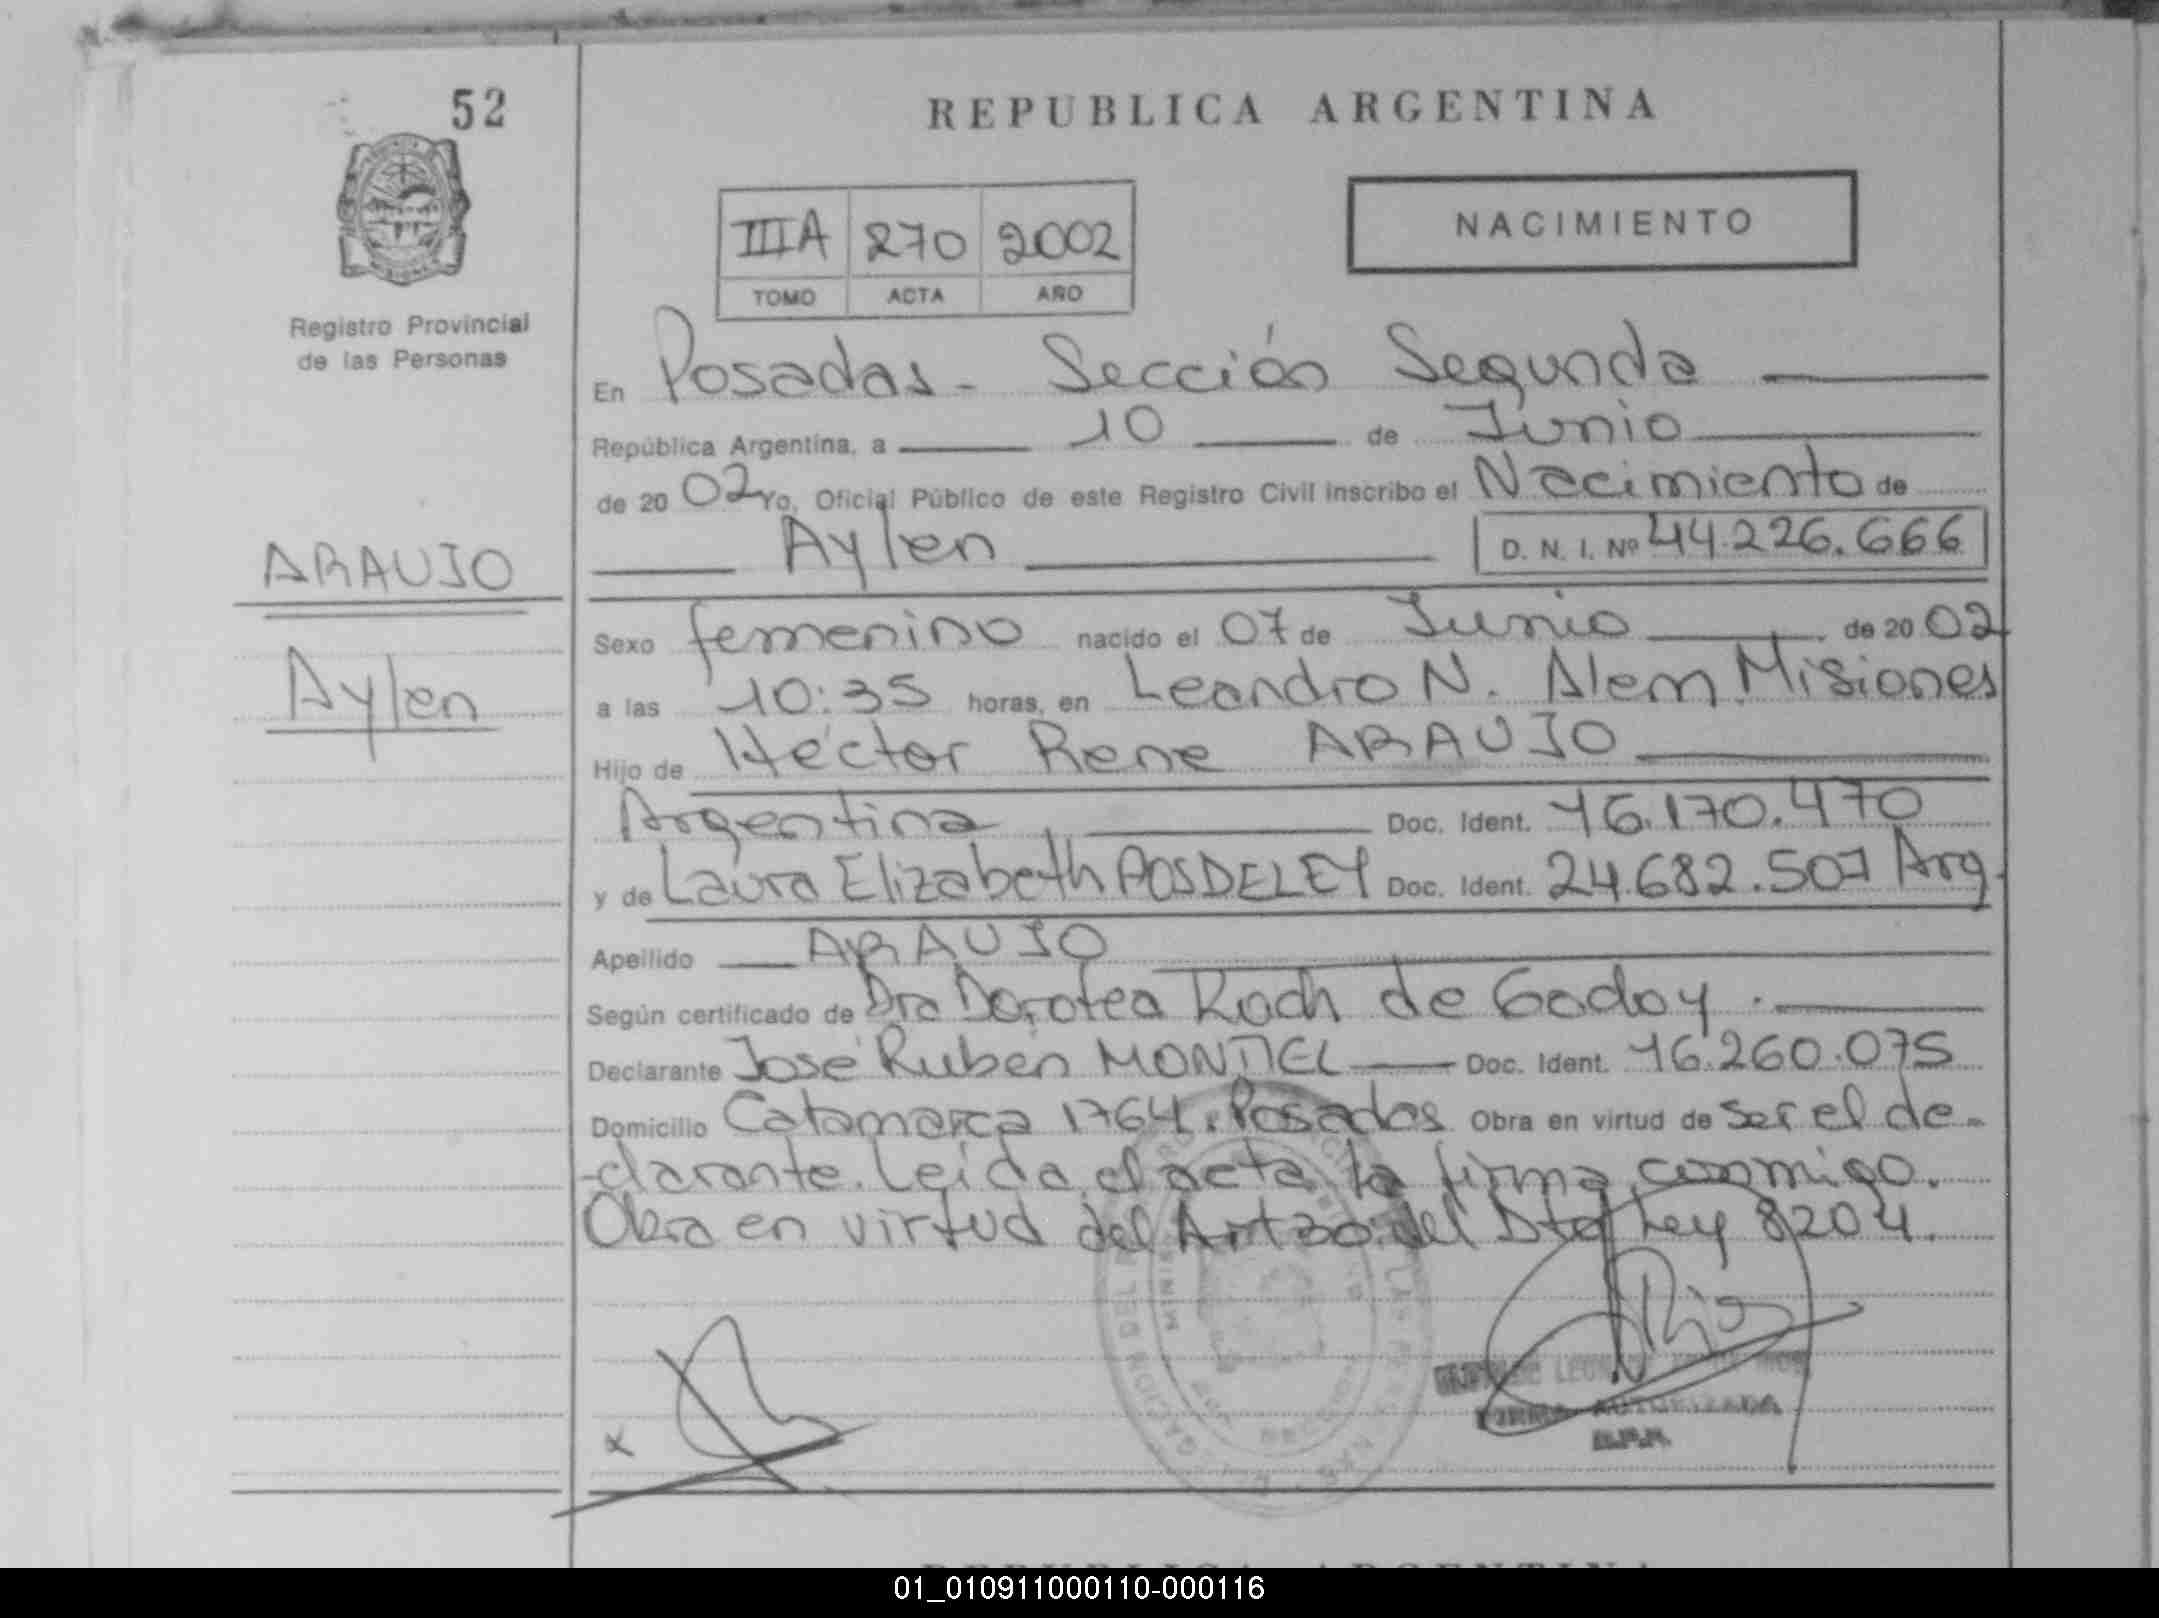 52
REPUBLICA ARGENTINA
NACIMIENTO
IIIA 270 2002
TOMO ACTA AÑO
Registro Provincial
de las Personas
En Posadas - Sección Segunda
República Argentina, a 10 de Junio
de 20 02 Yo, Oficial Público de este Registro Civil inscribo el Nacimiento de
Aylen D. N. I. Nº 44.226.666
ARAUJO
Aylen
Sexo femenino nacido el 07 de Junio de 20 02
a las 10:35 horas, en Leandro N. Alem Misiones
Hijo de Héctor Rene ARAUJO
Argentina Doc. Ident. 16.170.470
y de Laura Elizabeth POSDELEY Doc. Ident. 24.682.507 Arg.
Apellido ARAUJO
Según certificado de Dra Dorotea Koch de Godoy.
Declarante José Ruben MONTIEL Doc. Ident. 16.260.075
Domicilio Catamarca 1764. Posadas Obra en virtud de ser el de-
-clarante. Leída el acta la firma conmigo.
Obra en virtud del Art 30 del Dto Ley 8204.
x
FIRMA AUTORIZADA
01_010911000110-000116